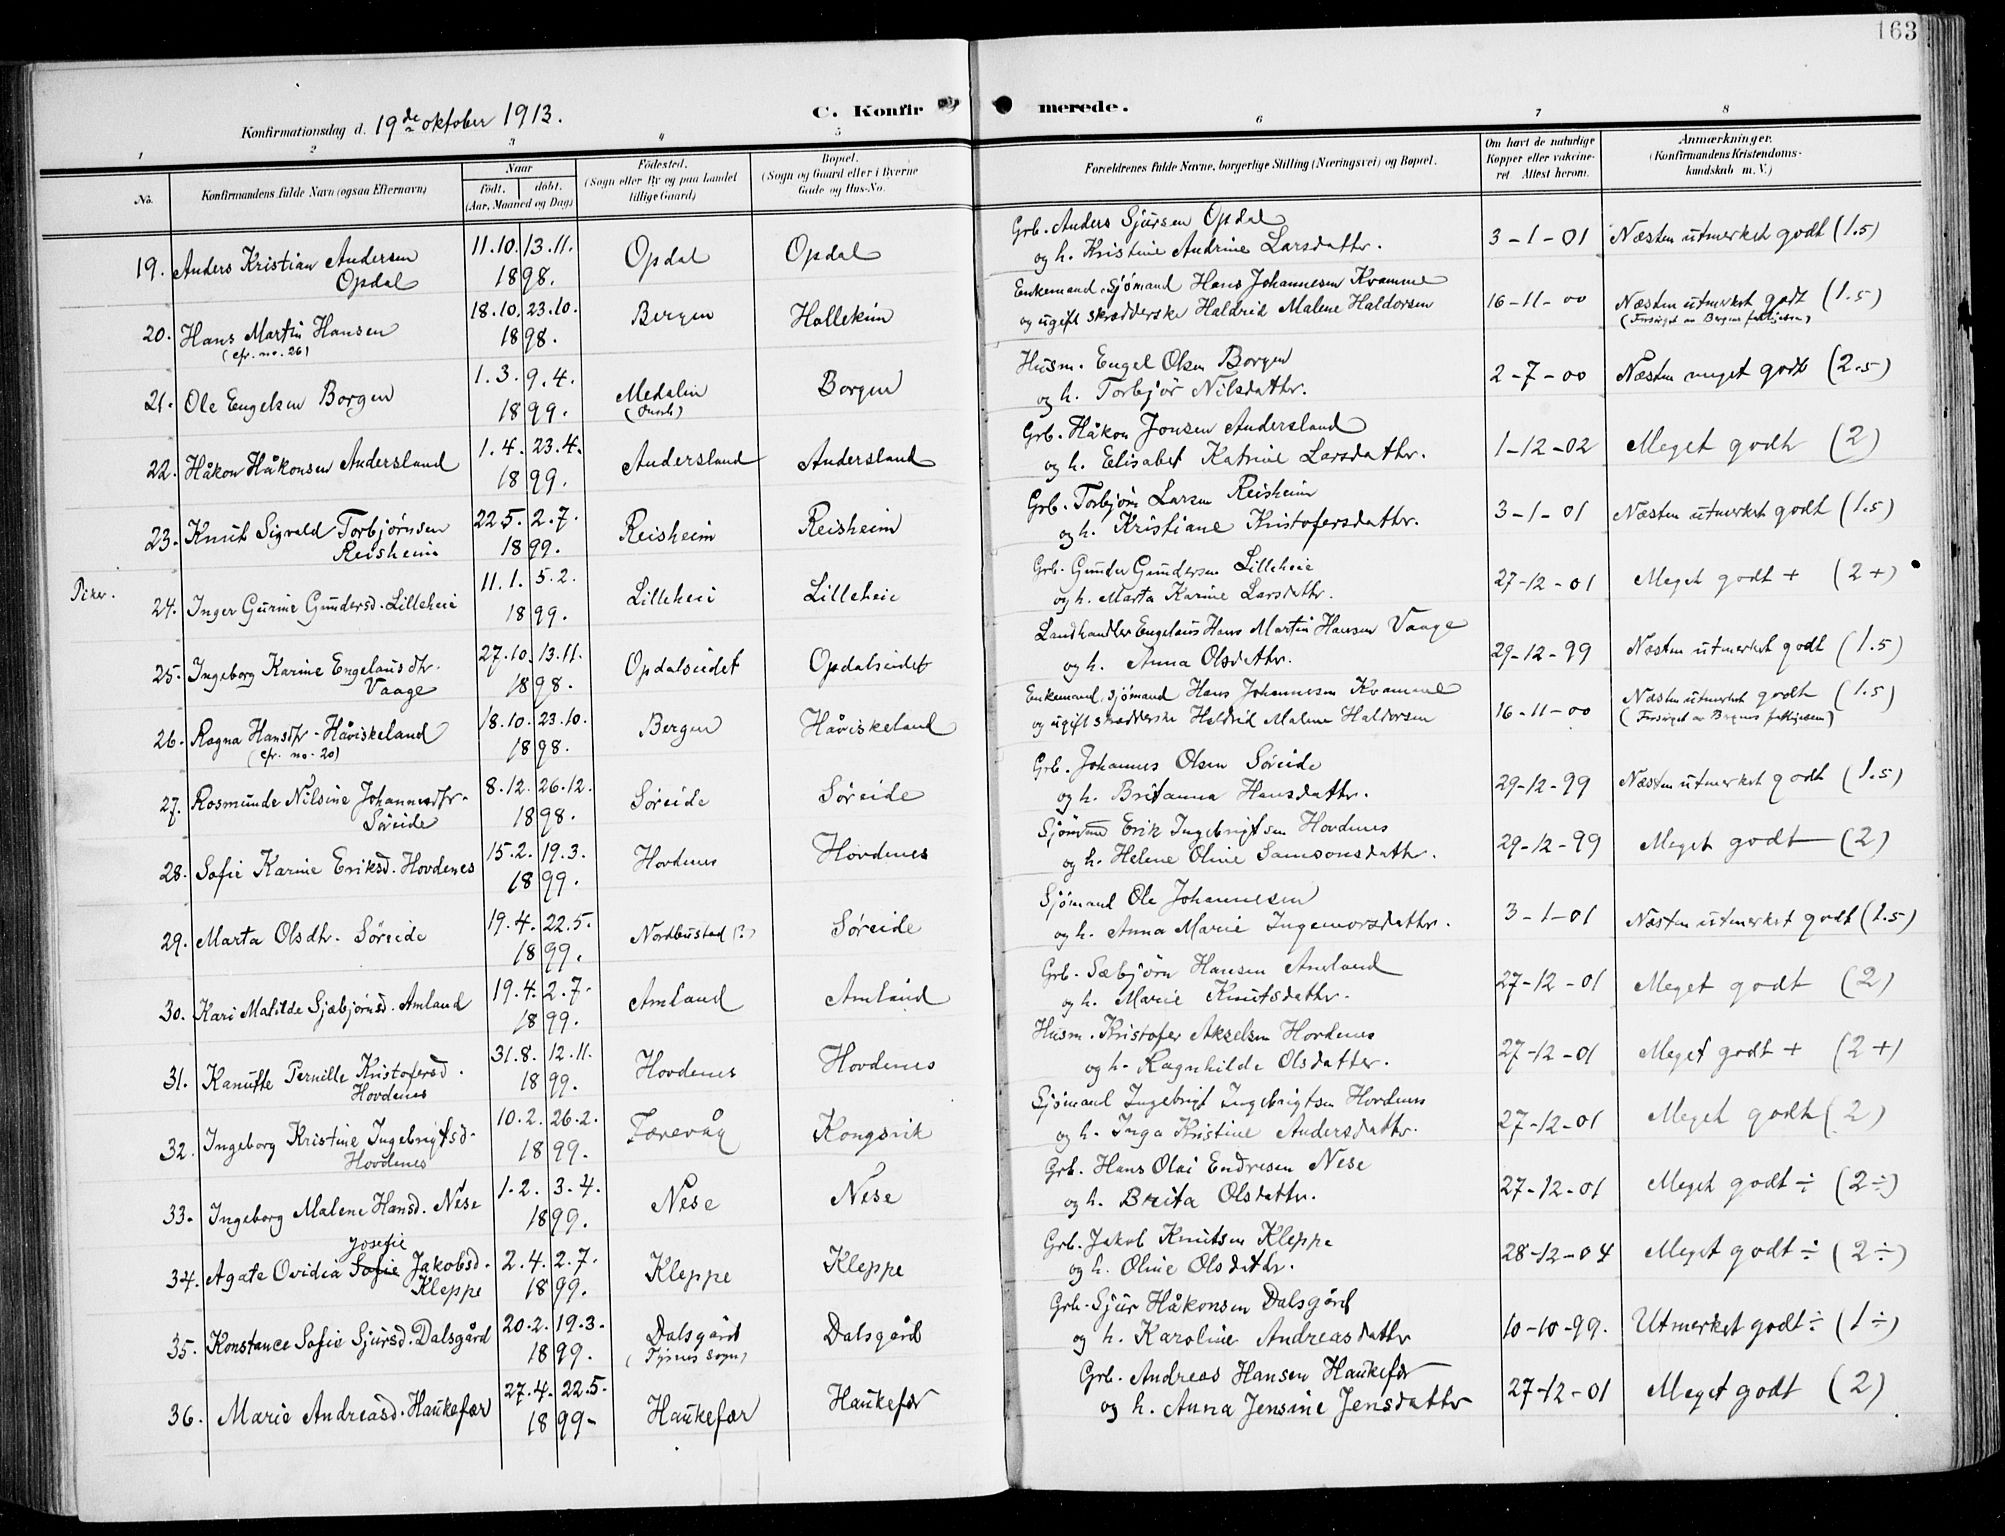 163
Konfirmationsdag d. 19de oktober 1913.
C. Konfirmerede.
1 2 3 4 5 6 7 8
No.
Konfirmandens fulde Navn (ogsaa Efternavn)
Naar
født. døbt.
(Aar, Maaned og Dag)
Fødested.
(Sogn eller By og paa Landet
tillige Gaard)
Bopæl.
(Sogn og Gaard eller i Byerne
Gade og Hus-No.
Forældrenes fulde Navne, borgerlige Stilling (Næringsvei) og Bopæl.
Om havt de naturlige
Kopper eller vakcine-
ret Attest herom.
Anmærkninger.
(Konfirmandens Kristendoms-
kundskab m. V.)
19. Anders Kristian Andersen 11.10. 13.11. Opdal Opdal Grb. Anders Sjursen Opdal 3-1-01 Næsten utmerket godt (1.5)
Opdal 1898. og h. Kristine Andrine Larsdattr.
20. Hans Martin Hansen 18.10. 23.10. Bergen Hallekim Enkemand, Sjømand Hans Johannesen Kvamme 16-11-00 Næsten utmerket godt (1.5)
(cfr. no. 26) 1898. og ugift skrædderske Haldrid Malene Haldorsen (Forsørget av Bergens fattigvesen)
21. Ole Engelsen Borgen 1.3. 9.4. Medalen Borgen Husm. Engel Olsen Borgen 2-7-00 Næsten meget godt (2.5)
1899. og h. Torbjør Nilsdattr.
22. Håkon Håkonsen Andersland 1.4. 23.4. Andersland Andersland Grb. Håkon Jonsen Andersland 1-12-02 Meget godt (2)
1899. og h. Elisabet Katrine Larsdattr.
23. Knut Sigvald Torbjørnsen 22.5. 2.7. Reisheim Reisheim Grb. Torbjørn Larsen Reisheim 3-1-01 Næsten utmerket godt (1.5)
Reisheim 1899. og h. Kristiane Kristofersdattr.
Piker.
24. Inger Gurine Gundersd. Lilleheie 11.1. 5.2. Lilleheii Lilleheie Grb. Gunder Gundersen Lilleheie 27-12-01 Meget godt + (2+)
1899. og h. Marta Karine Larsdattr.
25. Ingeborg Karine Engelausdtr. 27.10. 13.11. Opdalseidet Opdalseidet Landhandler Engelaus Hans Martin Hansen Vaage 29-12-99 Næsten utmerket godt (1.5)
Vaage 1898. og h. Anna Olsdattr.
26. Ragna Hansdtr. Håviskeland 18.10. 23.10. Bergen Håviskeland Enkemand, sjømand Hans Johannesen Kvamme 16-11-00 Næsten utmerket godt (1.5)
(cfr. no. 20) 1898. og ugift skrædderske Haldrid Malene Haldorsen (Forsørget av Bergens fattigvesen)
27. Rosmunde Nilsine Johannesdtr. 8.12. 26.12. Søreide Søreide Grb. Johannes Olsen Søreide 29-12-99 Næsten utmerket godt (1.5)
Søreide 1898. og h. Britanna Hansdattr.
28. Sofie Karine Eriksd. Hovdenes 15.2. 19.3. Hovdenes Hovdenes Sjømand Erik Ingebrigtsen Hovdenes 29-12-99 Meget godt (2)
1899. og h. Helene Oline Samsonsdattr.
29. Marta Olsdtr. Søreide 19.4. 22.5. Nordbustad (?) Søreide Sjømand Ole Johannesen 3-1-01 Næsten utmerket godt (1.5)
1899. og h. Anna Marie Ingemorsdattr.
30. Kari Matilde Sjæbjørnsd. Amland 19.4. 2.7. Amland Amland Grb. Sæbjørn Hansen Amland 27-12-01 Meget godt (2)
1899. og h. Marie Knutsdattr.
31. Kanutte Pernille Kristofersd. 31.8. 12.11. Hovdenes Hovdenes Husm. Kristofer Akselsen Hovdenes 27-12-01 Meget godt + (2+)
Hovdenes 1899. og h. Ragnhilde Olsdatter.
32. Ingeborg Kristine Ingebrigtsd. 10.2. 26.2. Færevåg Kongsvik Sjømand Ingebrigt Ingebrigtsen Hovdenes 27-12-01 Meget godt (2)
Hovdenes 1899. og h. Inga Kristine Andersdattr.
33. Ingeborg Malene Hansd. Nese 1.2. 3.4. Nese Nese Grb. Hans Olai Endresen Nese 27-12-01 Meget godt ÷ (2÷)
1899. og h. Brita Olsdattr.
Josefie
34. Agate Ovidia Sofie Jakobsd. 2.4. 2.7. Kleppe Kleppe Grb. Jakob Knutsen Kleppe 28-12-04 Meget godt ÷ (2÷)
Kleppe 1899. og h. Oline Olsdattr.
35. Konstance Sofie Sjursd. Dalsgård 20.2. 19.3. Dalsgård Dalsgård Grb. Sjur Håkonsen Dalsgård 10-10-99. Utmerket godt ÷ (1÷)
1899. (Tysnes sogn) og h. Karoline Andreasdattr
36. Marie Andreasd. Haukefær 27.4. 22.5. Haukefær Haukefær Grb. Andreas Hansen Haukefær 27-12-01 Meget godt (2)
1899. og h. Anna Jensine Jensdattr